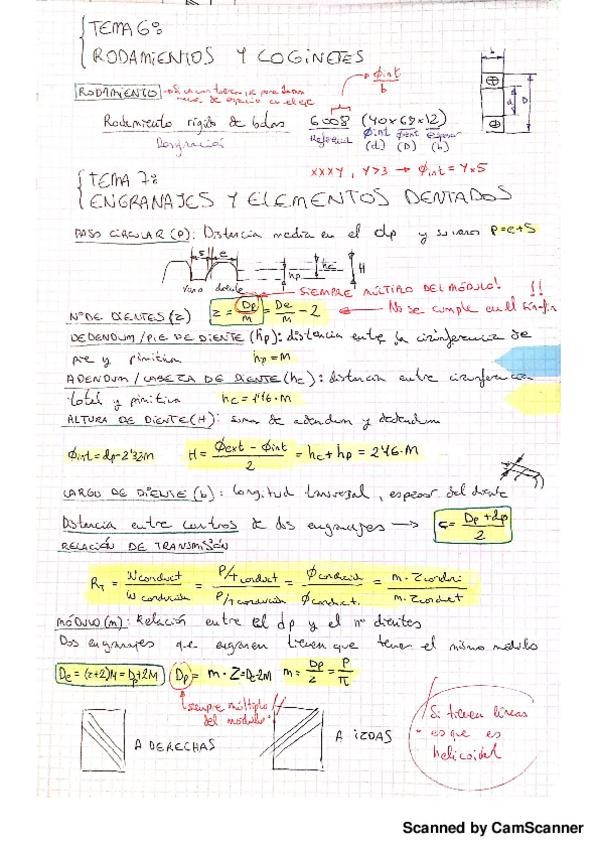 TEMA 6:
RODAMIENTOS Y COGINETES
Φint
b
RODAMIENTO
Rodamiento rígido de bolas 6008 (40x68x12)
Designación Referencia Φint Φext espesor
(d) (D) (b)
b
d
D
XXXY, Y>3 → Φint = Yx5
TEMA 7:
ENGRANAJES Y ELEMENTOS DENTADOS
PASO CIRCULAR (P): Distancia media en el dp y su vano P=e+S
S e hp hc H
Vano diente
SIEMPRE MÚLTIPLO DEL MÓDULO! !!
Nº DE DIENTES (z) z = Dp/m = De/m - 2 ← No se cumple en el
DEDENDUM/PIE DE DIENTE (hp): distancia entre la circunferencia de
pie y primitiva hp=M
ADENDUM/CABEZA DE DIENTE (hc): distancia entre circunferencia
total y primitiva hc=1'46·M
ALTURA DE DIENTE (H): suma de adendum y dedendum
Φint=dp-2'32M H = (Φext - Φint)/2 = hc+hp = 2'46·M
LARGO DE DIENTE (b): longitud transversal, espesor del diente
Distancia entre centros de dos engranajes → c = (Dp+dp)/2
RELACIÓN DE TRANSMISIÓN
RT = W conduct/W conducida = P/T conduct/P/T conducida = Φ conducida/Φ conduct. = m·Z conduci/m·Z conduct
MÓDULO (m): Relación entre el dp y el nº dientes
Dos engranajes que engranen tienen que tener el mismo módulo
De = (z+2)M = Dp+2M Dp = m·Z=De-2M m = Dp/z = P/π
siempre múltiplo
del módulo
A DERECHAS
A IZDAS
Si tienen líneas
es que es
helicoidal
Scanned by CamScanner